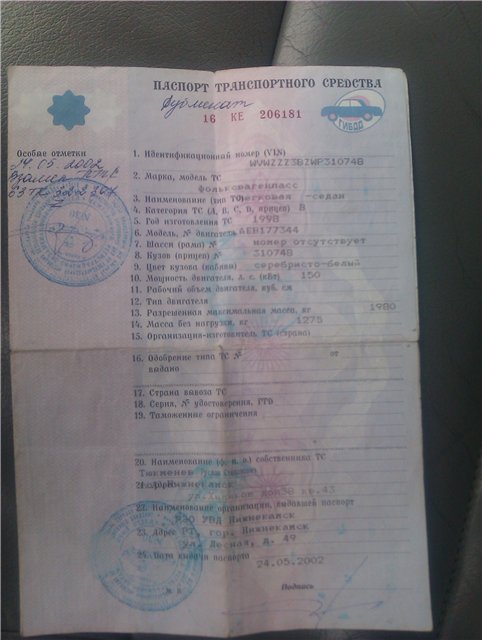 ПАСПОРТ ТРАНСПОРТНОГО СРЕДСТВА
Дубликат
16 КЕ 206181
ГИБДД
Особые отметки
24.05.2002
взамен ПТС
1. Идентификационный номер (VIN)
WVWZZZ3BZWP310748
2. Марка, модель ТС
фольквагенпасс
3. Наименование (тип ТС) легковая -седан
4. Категория ТС (А, В, С, D, прицеп) В
5. Год изготовления ТС 1998
6. Модель, № двигателя АЕН177344
7. Шасси (рама) № номер отсутствует
8. Кузов (прицеп) № 310748
9. Цвет кузова (кабины) серебристо-белый
10. Мощность двигателя, л. с. (кВт) 150
11. Рабочий объем двигателя, куб. см
12. Тип двигателя
13. Разрешенная максимальная масса, кг 1980
14. Масса без нагрузки, кг 1275
15. Организация-изготовитель ТС (страна)
16. Одобрение типа ТС № от
выдано
17. Страна вывоза ТС
18. Серия, № удостоверения, ГТД
19. Таможенные ограничения
20. Наименование (ф. и. о.) собственника ТС
21. Нижнекамск
кв.43
22. Наименование организации, выдавшей паспорт
РЭО УВД Нижнекамск
23. Адрес РТ, гор. Нижнекамск
ул. Лесная, д. 49
24. Дата выдачи паспорта
24.05.2002
Подпись
М. П.